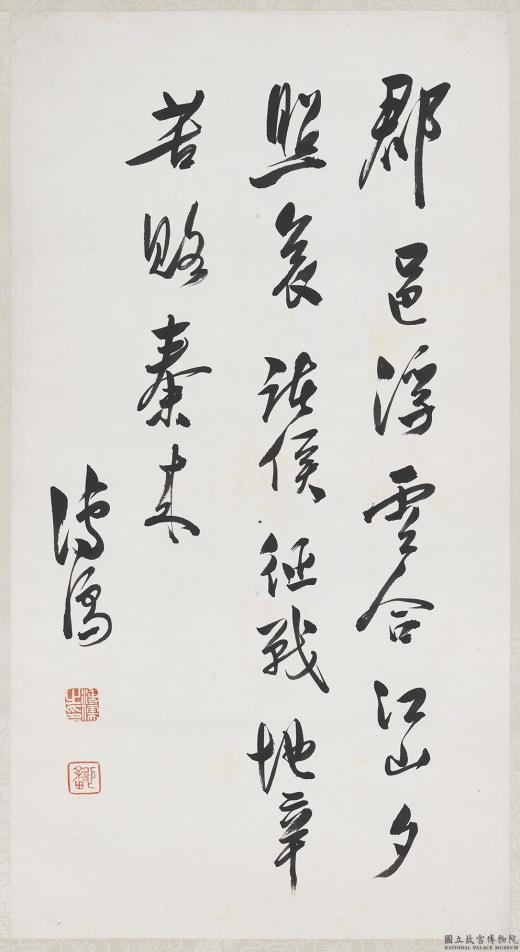 郡邑浮雲合江山夕
照哀諸侯征戰地辛
苦賂秦來
溥儒
溥儒之印
國立故宮博物院
NATIONAL PALACE MUSEUM